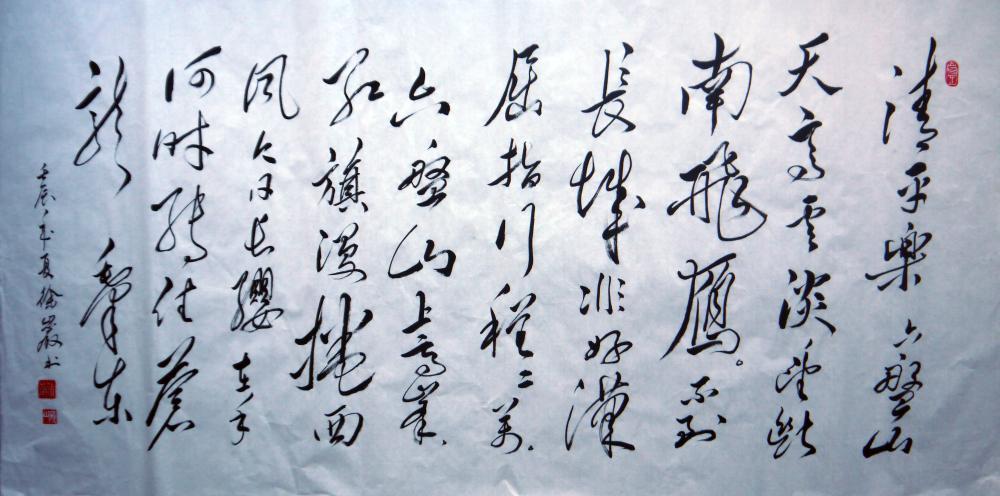 清平樂 六盤山
天高云淡望斷
南飛鴈。不到
長城非好漢
屈指行程二萬
六盤山上高峯
紅旗漫捲西
風今日長纓在手
何時縛住蒼
龍 東
壬辰夏徐書